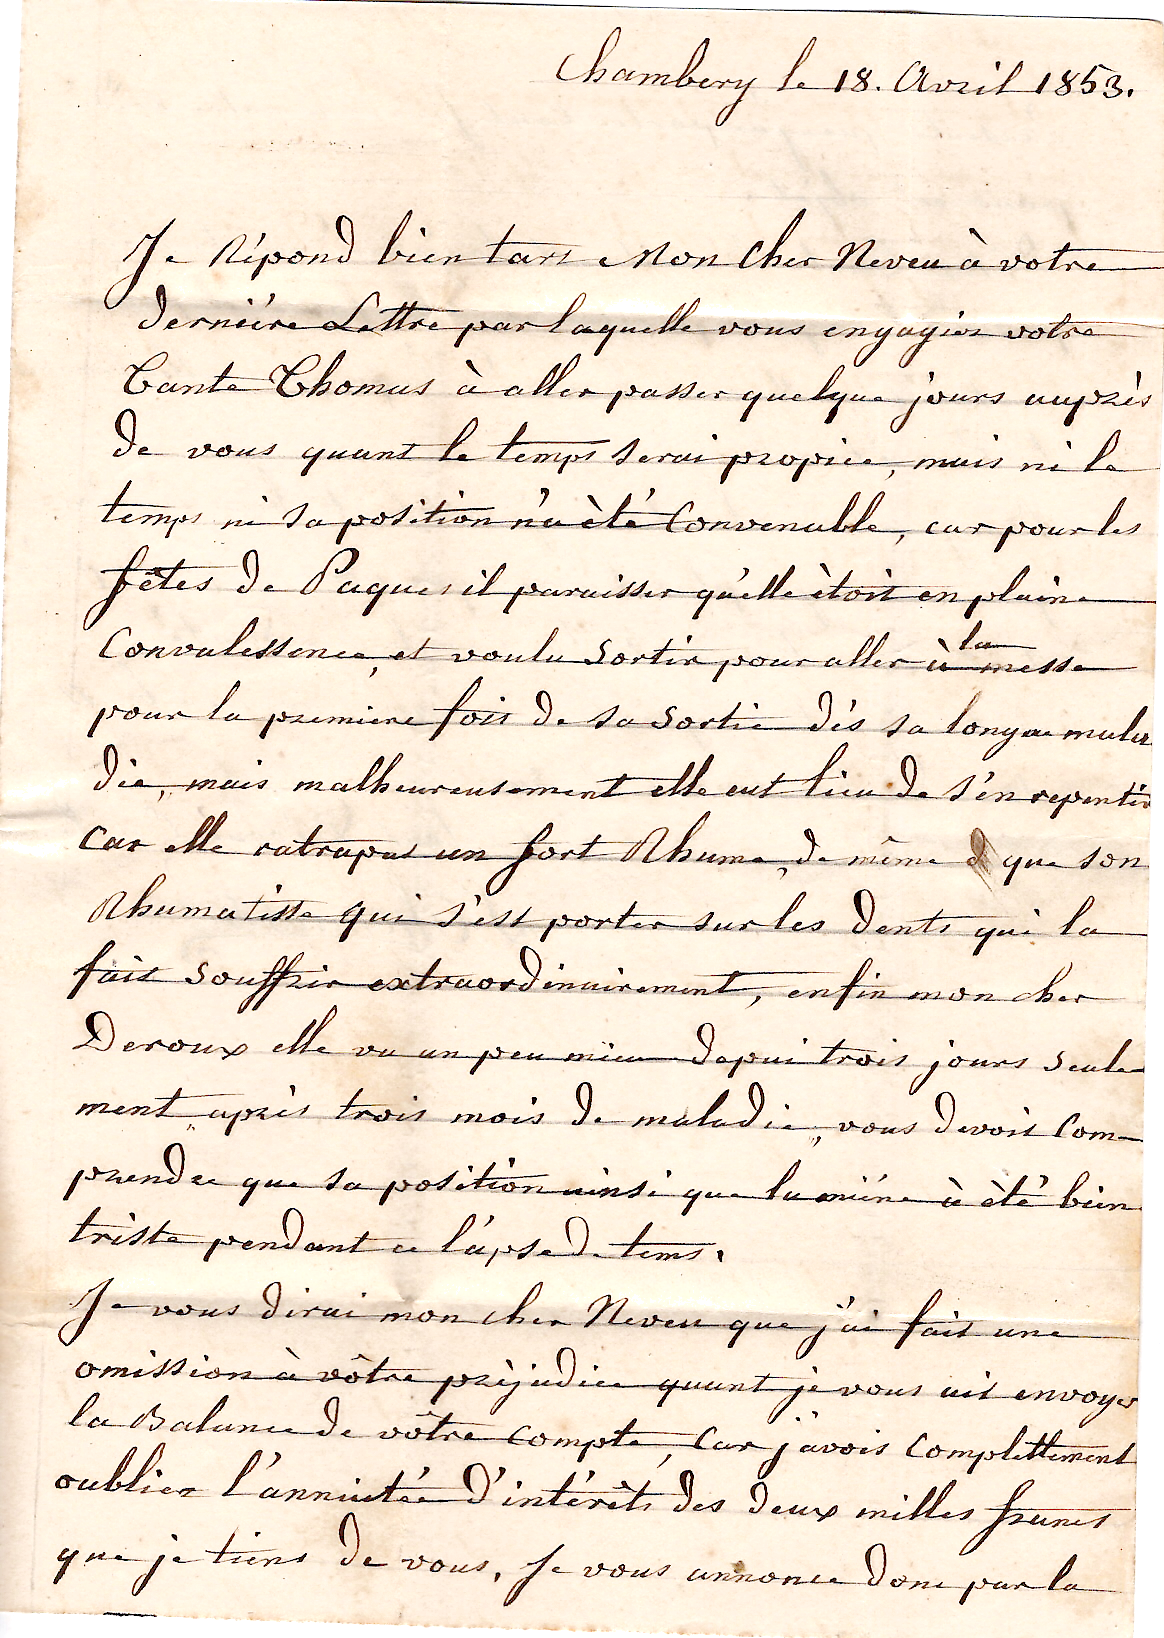 Chambery le 18. Avril 1853.
Je Répond bien tart Mon Cher Neveu à votre
derniére Lettre par laquelle vous engagier votre
Tante Thomas à aller passer quelque jours auprès
de vous quant le temps serai propice, mais ni le
temps ni sa position n'a èté Convenable, car pour les
fêtes de Paques il paraisser qu'elle ètoit en plaine
Convalessence, et voulu sortir pour aller à la messe
pour la premiere fois de sa sortie dés sa longue mala
die, mais malheureusement elle eut lieu de s'en repentir
car elle ratrapat un fort Rhume, de même que son
Rhumatisse qui s'est porter sur les dents qui la
fait souffrir extraordinairement, enfin mon cher
Deroux elle va un peu mieu depui trois jours seule
ment après trois mois de maladie, vous devoit Com-
prendre que sa position ainsi que la miéne à èté bien
triste pendant ce l'apse de tems.
Je vous dirai mon cher Neveu que j'ai fait une
omission à vôtre prèjudice quant je vous ait envoyer
la Balance de vôtre Compte, Car j'avois Complettement
oublier l'annuitée d'intérêts des deux milles francs
que je tiens de vous, Je vous annonce donc par la